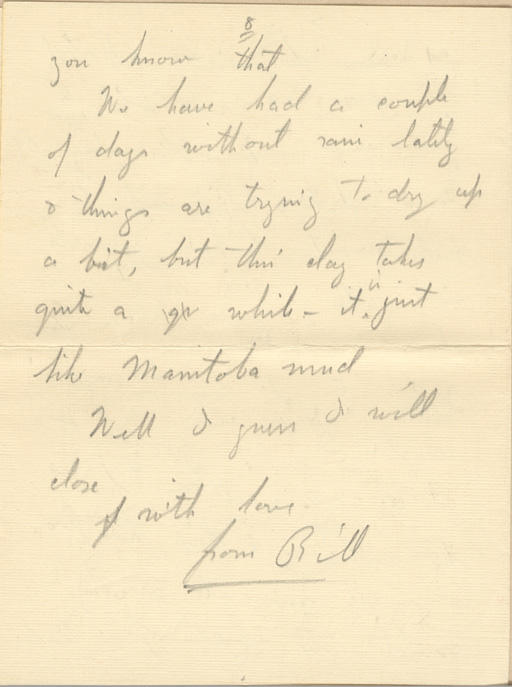 8
you know that
We have had a couple
of days without rain lately
& things are trying to dry up
a bit, but this clay takes
quite a while – it is just
like Manitoba mud
Well I guess I will
close
with love
from Bill